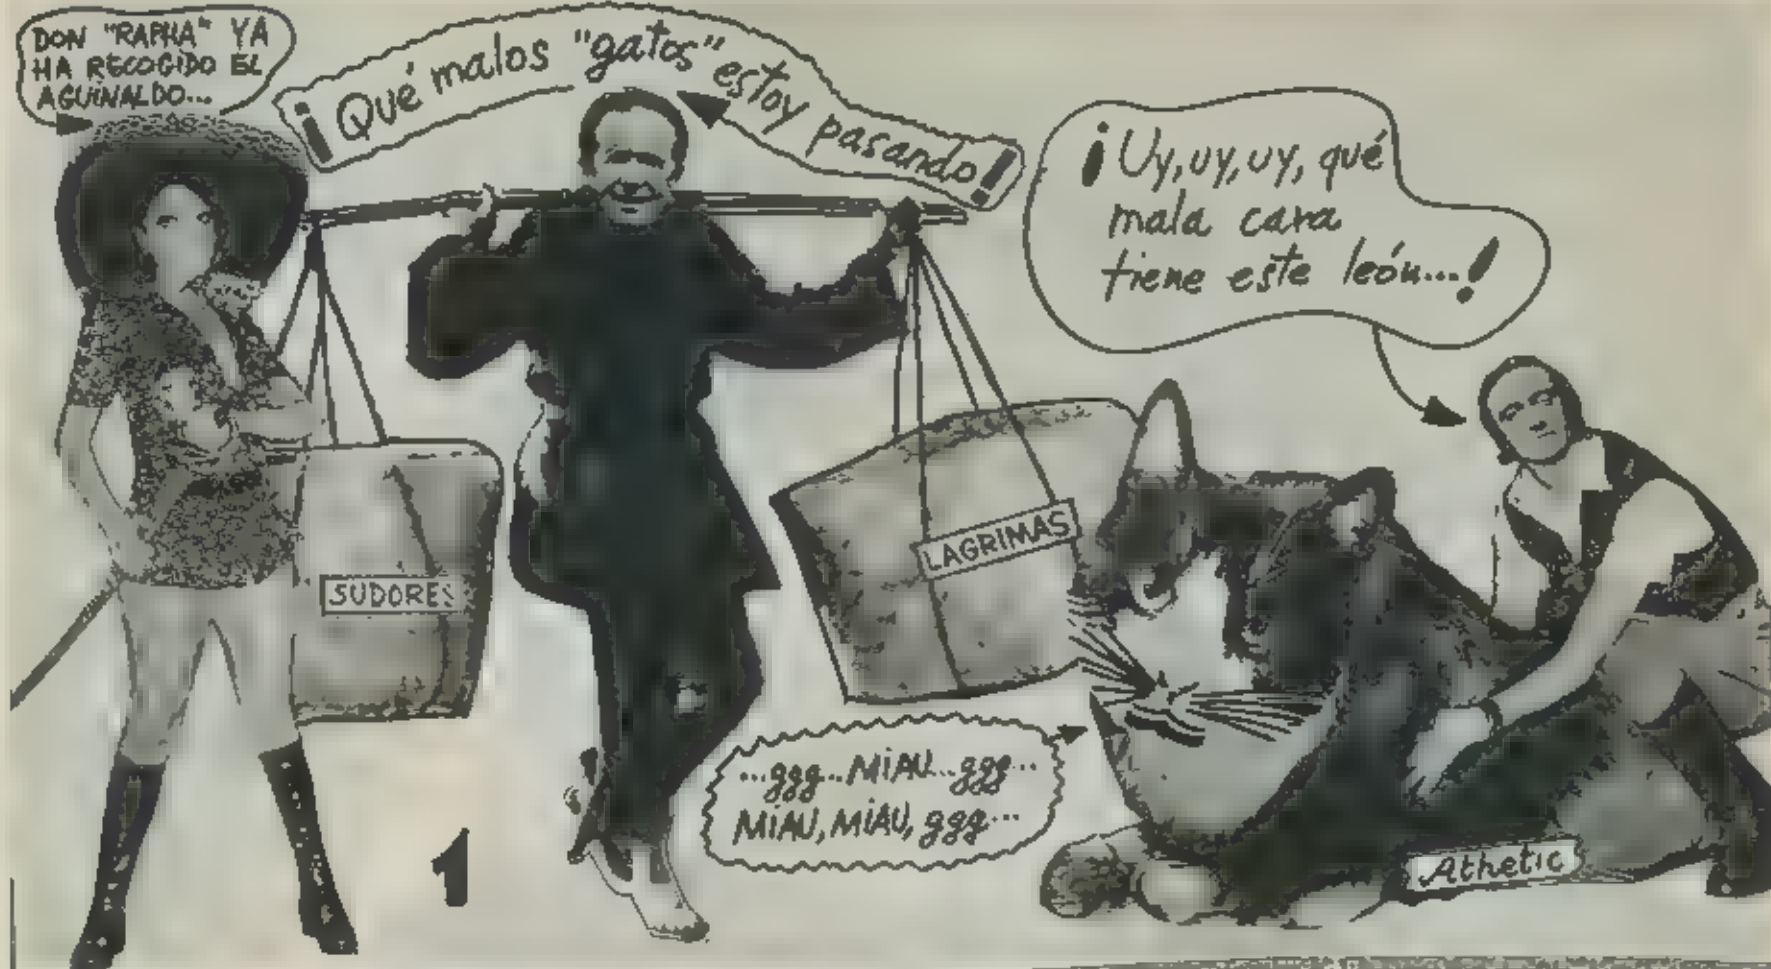 DON "RAPHA" YA
HA RECOGIDO EL
AGUINALDO...
¡Qué malos "gatos" estoy pasando!
¡Uy, uy, uy, qué
mala cara
tiene este león...!
SUDORES
LAGRIMAS
...ggg...MiAU...ggg...
MiAU, MiAU, ggg...
1
Athetic